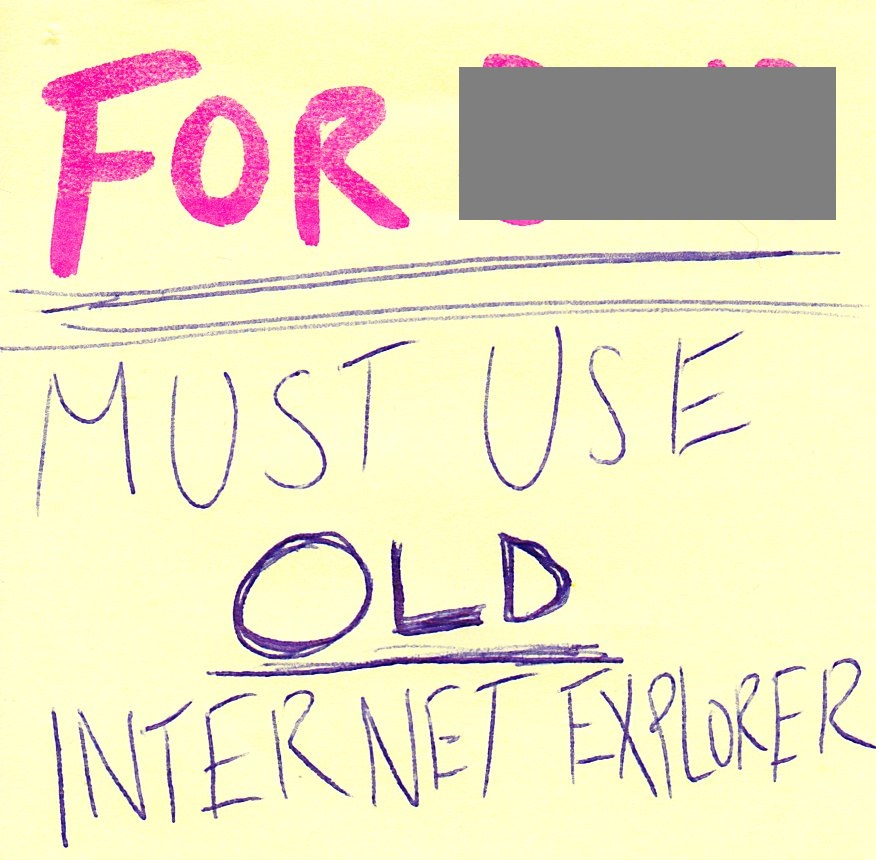 FOR
MUST USE
OLD
INTERNET EXPLORER